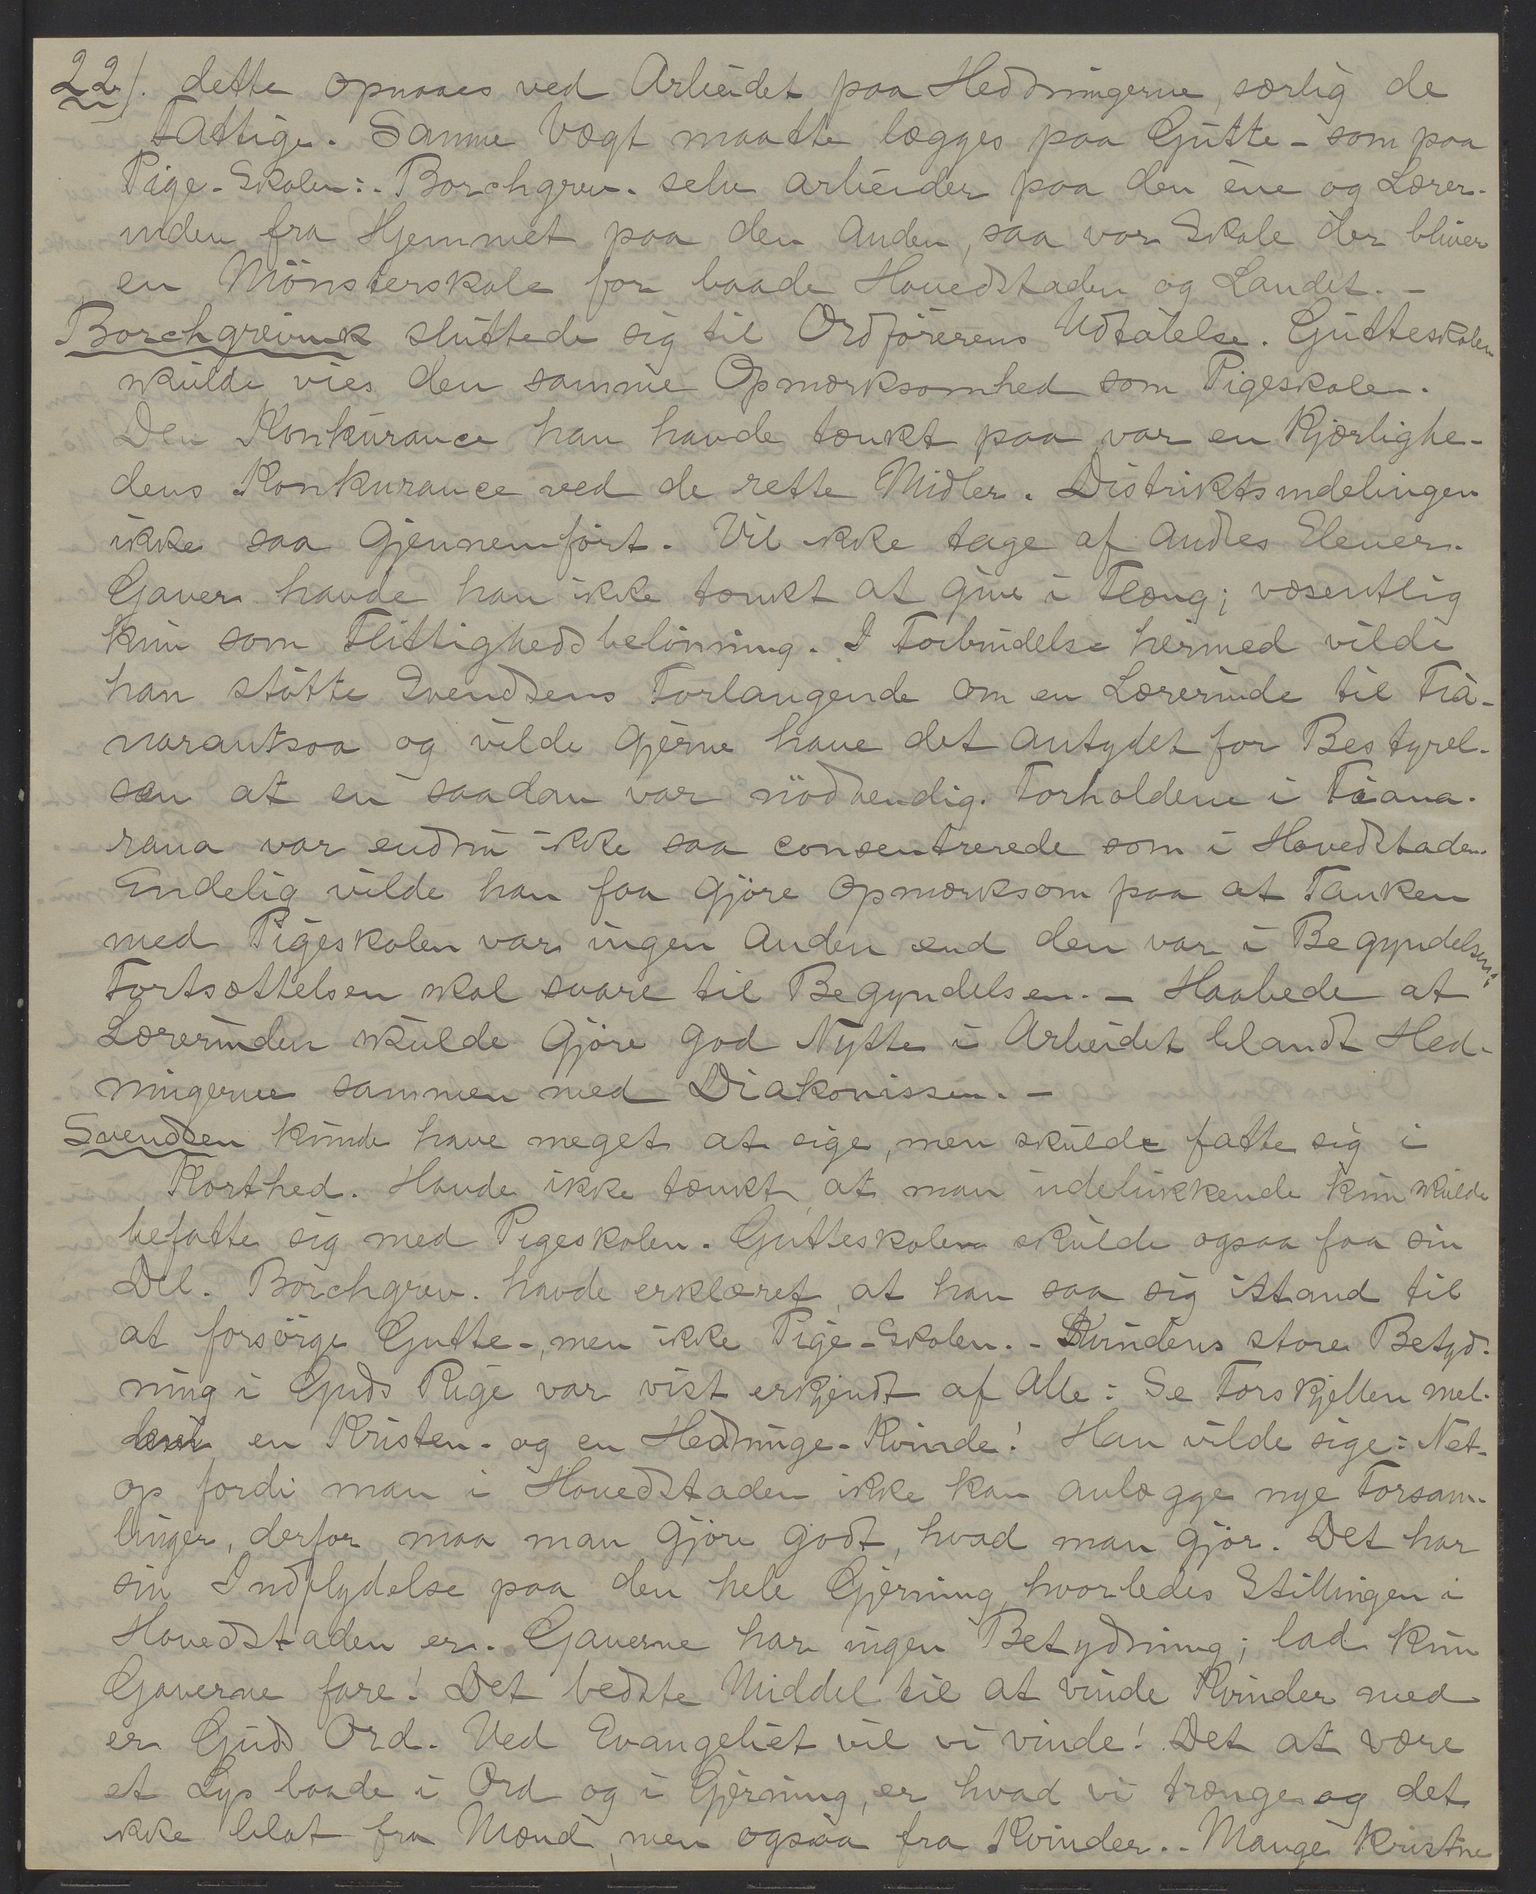 22/. dette opnaaes ved Arbeidet paa Hedningerne, særlig de
Fattige. Samme Vægt maatte lægges paa Gutte- som paa
Pige-Skolen:. Borchgrev. selv arbeider paa den ene og Lærer-
inden fra Hjemmet paa den Anden, saa vor Skole der bliver
en Mönsterskole for baade Hovedstaden og Landet. -
Borchgrevink sluttede sig til Ordförerens Udtalelse. Gutteskolen
skulde vies den samme Opmærksomhed som Pigeskolen.
Den Konkurance han havde tænkt paa var en Kjærlighe-
dens Konkurance ved de rette Midler. Distriktsindelingen
ikke saa gjennemfört. Vil ikke tage af Andres Elever.
Gaver havde han ikke tænkt at give i Flæng; væsentlig
kun som Flittighedsbelönning. I Forbindelse hermed vilde
han stötte Svendsens Forlangende om en Lærerinde til Fia-
narantsoa og vilde gjerne have det antydet for Bestyrel-
sen at en saadan var nödvendig. Forholdene i Fiana-
rana var endnu ikke saa consentrerede som i Hovedstaden.
Endelig vilde han faa gjöre opmærksom paa at Tanken
med Pigeskolen var ingen anden end den var i Begyndelsen:
Fortsættelsen skal svare til Begyndelsen. - Haabede at
Lærerinden skulde gjöre god Nytte i Arbeidet blandt Hed-
ningerne sammen med Diakonissen. -
Svendsen kunde have meget at sige, men skulde fatte sig i
Korthed. Havde ikke tænkt, at man udelukkende kun skulde
befatte sig med Pigeskolen. Gutteskolen skulde ogsaa faa sin
Del. Borchgrev. havde erklæret, at han saa sig istand til
at forsörge Gutte-, men ikke Pige-Skolen. - Kvindens store Betyd-
ning i Guds Rige var vist erkjendt af Alle: Se Forskjellen mel-
lem en Kristen- og en Hedninge-Kvinde! Han vilde sige: Net-
op fordi man i Hovedstaden ikke kan anlægge nye Forsam-
linger, derfor maa man gjöre godt, hvad man gjör. Det har
sin Indflydelse paa den hele Gjerning, hvorledes Stillingen i
Hovedstaden er. Gaverne har ingen Betydning; lad kun
Gaverne fare! Det bedste Middel til at vinde Kvinder med
er Guds Ord. Ved Evangeliet vil vi vinde! Det at være
et Lys baade i Ord og i Gjerning, er hvad vi trænge og det
ikke blot fra Mænd, men ogsaa fra Kvinder. - Mange Kristne